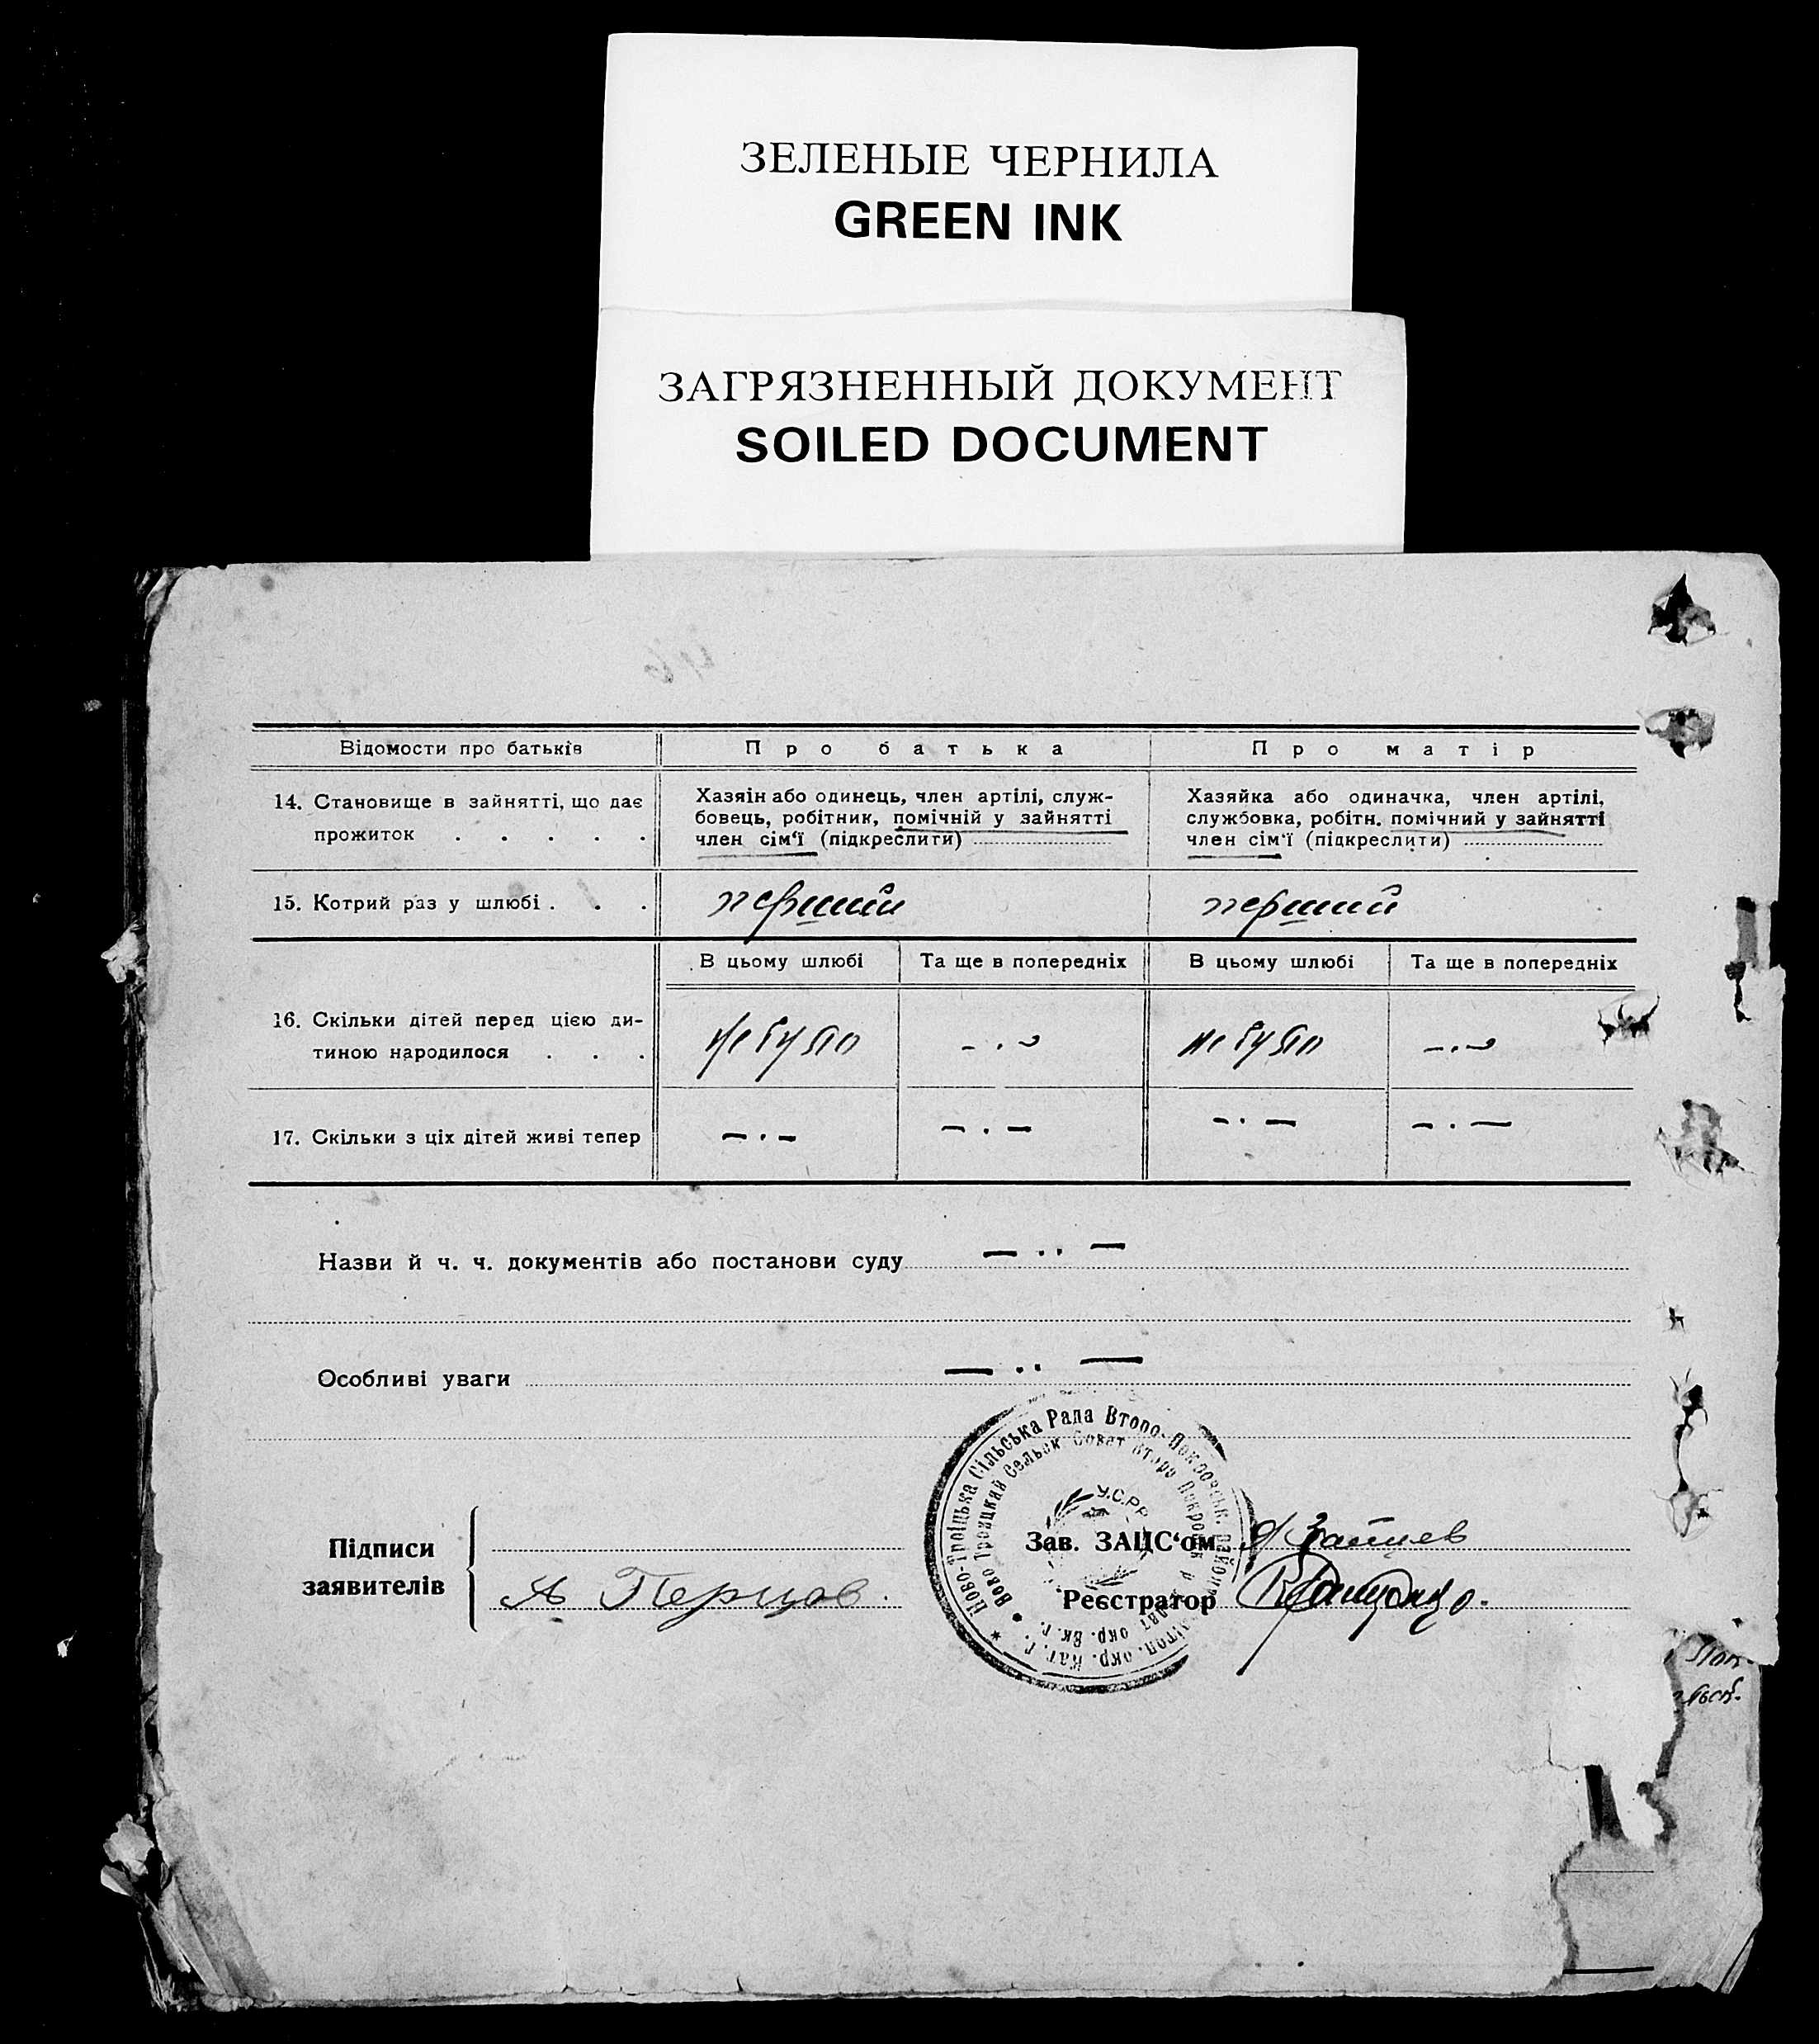 ЗЕЛЕНЫЕ ЧЕРНИЛА
GREEN INK
ЗАГРЯЗНЕННЫЙ ДОКУМЕНТ
SOILED DOCUMENT
Відомости про батьків
Про батька
Про матір
14. Становище в зайнятті, що дає
прожиток . . . . .
Хазяін або одинець, член артілі, служ-
бовець, робітник, помічній у зайнятті
член сім‘ї (підкреслити)
Хазяйка або одиначка, член артілі,
службовка, робітн. помічний у зайнятті
член сім‘ї (підкреслити)
15. Котрий раз у шлюбі . . .
перший
перший
В цьому шлюбі
Та ще в попередніх
В цьому шлюбі
Та ще в попередніх
16. Скільки дітей перед цією ди-
тиною народилося . . .
не було
не було
17. Скільки з ціх дітей живі тепер
Назви й ч. ч. документів або постанови суду
Особливі уваги
Ново-Троіцька Сільська Рада Второ-Покровськ.
Ново Троицкий Сельск Совет Второ Покровск
У.С.Р.Р.
Підписи
заявителів
А Перцов.
Зав. ЗАЦС‘ом
Зайцев
Реєстратор